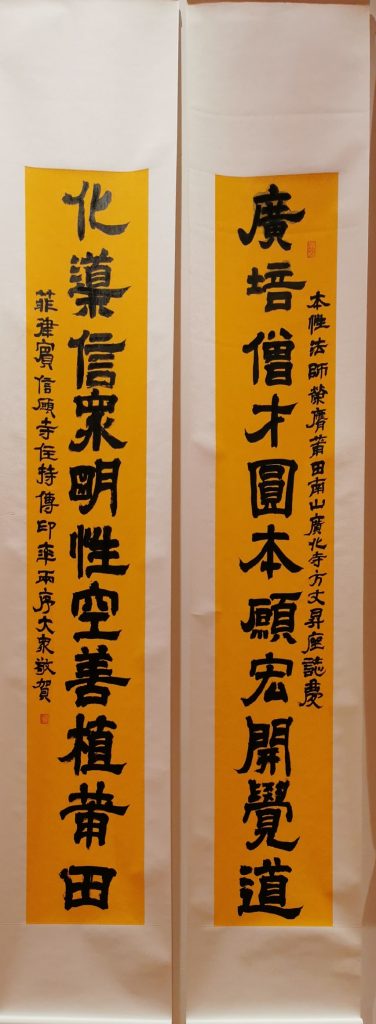 本性法師榮膺莆田南山廣化寺方丈昇座誌慶
廣培僧才圓本願宏開覺道
化導信眾明性空善植莆田
菲律賓信願寺住持傳印率兩序大眾敬賀